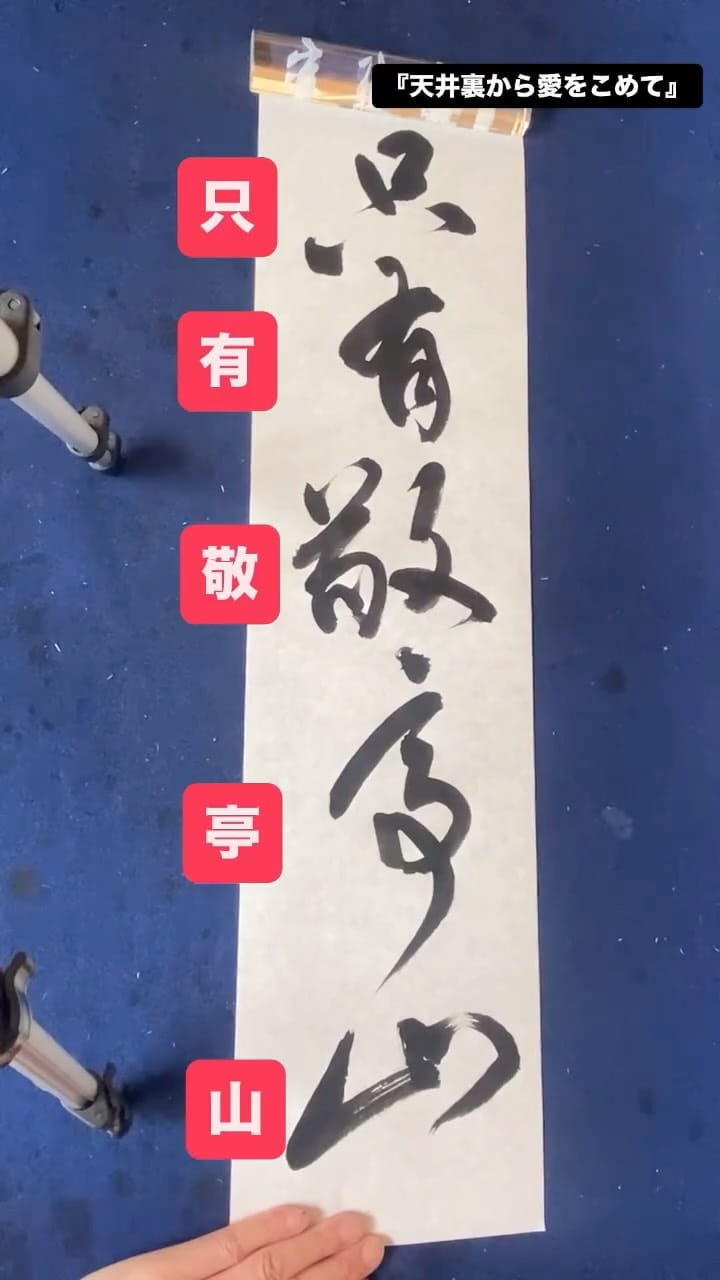 『天井裏から愛をこめて』
只有敬亭山
只
有
敬
亭
山